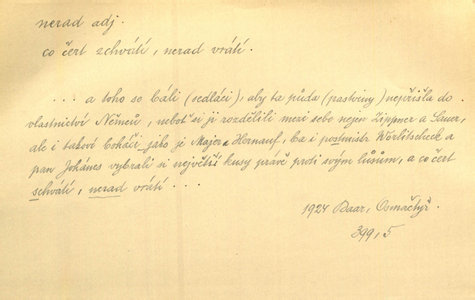 nerad adj.
co čert zchvátí, nerad vrátí.
... a toho se báli (sedláci), aby ta půda (pastviny) nepřišla do
vlastnictví Němců, neboť si ji rozdělili mezi sebe nejen Zippner a Lauer,
ale i takoví boháči jako je Majer a Hernauf, ba i postmistr Wörlitscheck a
pan Johánes vybrali si největší kusy právě proti svým lúsům, a co čert
schvátí, nerad vrátí ...
1924 Baar, Osmačtyř.
399, 5